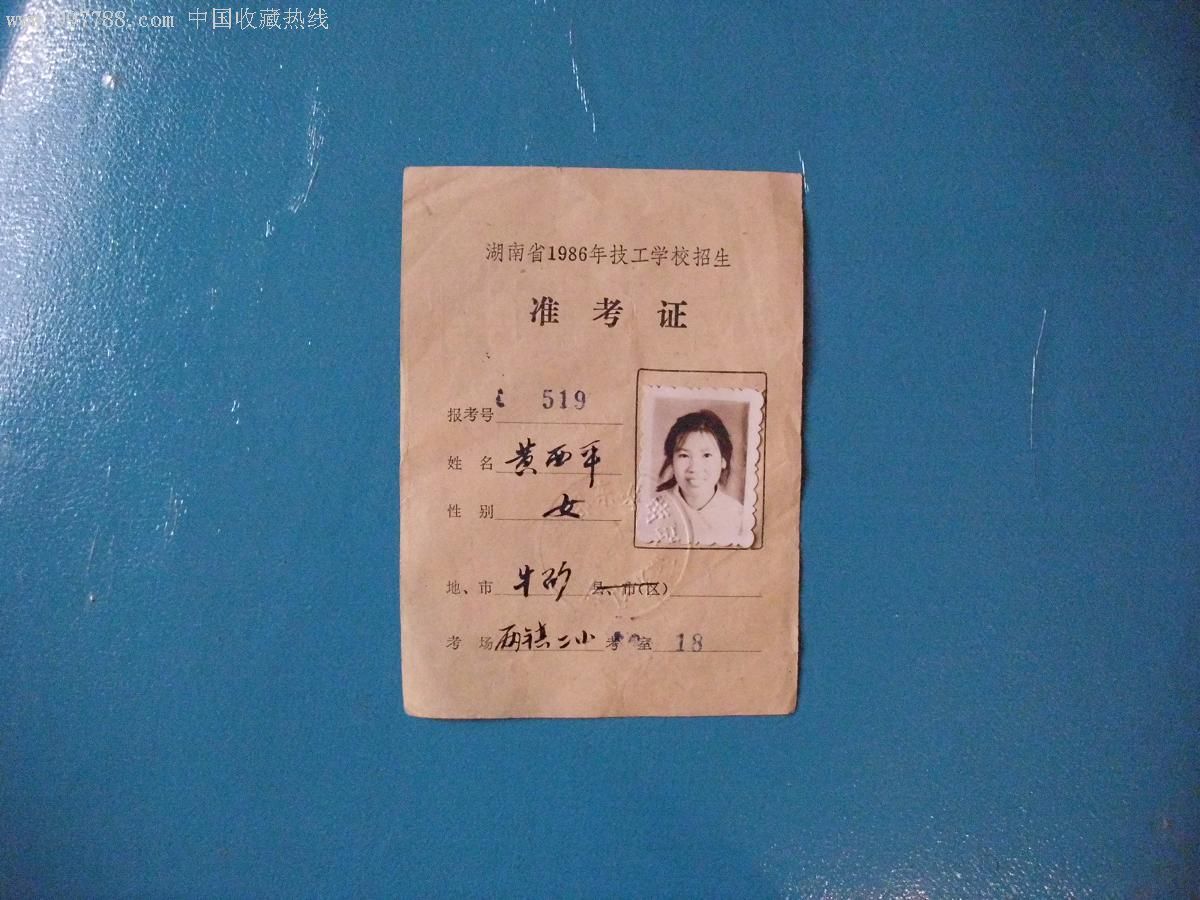 中国收藏热线
湖南省1986年技工学校招生
准考证
报考号 519
姓名 黄西平
性别 女
地、市 牛矽 县、市(区)
考场 两镇二小 考室 18